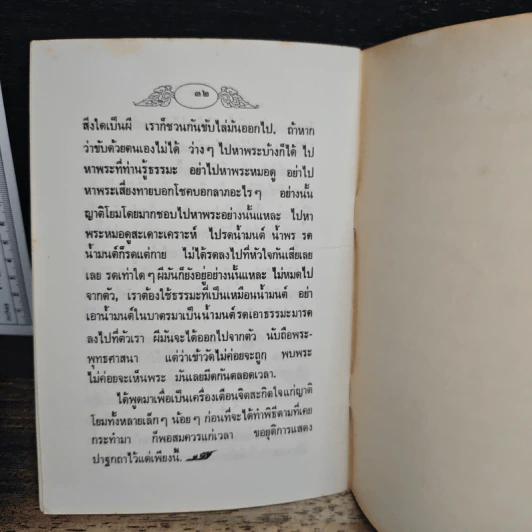 ๓๒
สิ่งใดเป็นผี เราก็ชวนกันขับไล่มันออกไป. ถ้าหาก
ว่าขับด้วยตนเองไม่ได้ ว่าง ๆ ไปหาพระบ้างก็ได้ ไป
หาพระที่ท่านรู้ธรรมะ อย่าไปหาพระหมอดู อย่าไป
หาพระเสี่ยงทายบอกโชคบอกลาภอะไร ๆ อย่างนั้น
ญาติโยมโดยมากชอบไปหาพระอย่างนั้นแหละ ไปหา
พระหมอดูสะเดาะเคราะห์ ไปรดน้ำมนต์ น้ำพร รด
น้ำมนต์ก็รดแต่กาย ไม่ได้รดลงไปที่หัวใจกันเสียเลย
เลย รดเท่าใด ๆ ผีมันก็ยังอยู่อย่างนั้นแหละ ไม่หมดไป
จากตัว, เราต้องใช้ธรรมะที่เป็นเหมือนน้ำมนต์ อย่า
เอาน้ำมนต์ในบาตรมาเป็นน้ำมนต์รดเอาธรรมะมารด
ลงไปที่ตัวเรา ผีมันจะได้ออกไปจากตัว นับถือพระ-
พุทธศาสนา แต่ว่าเข้าวัดไม่ค่อยจะถูก พบพระ
ไม่ค่อยจะเห็นพระ มันเลยมืดกันตลอดเวลา.
ได้พูดมาเพื่อเป็นเครื่องเตือนจิตสะกิดใจแก่ญาติ
โยมทั้งหลายเล็ก ๆ น้อย ๆ ก่อนที่จะได้ทำพิธีตามที่เคย
กระทำมา ก็พอสมควรแก่เวลา ขอยุติการแสดง
ปาฐกถาไว้แต่เพียงนี้.